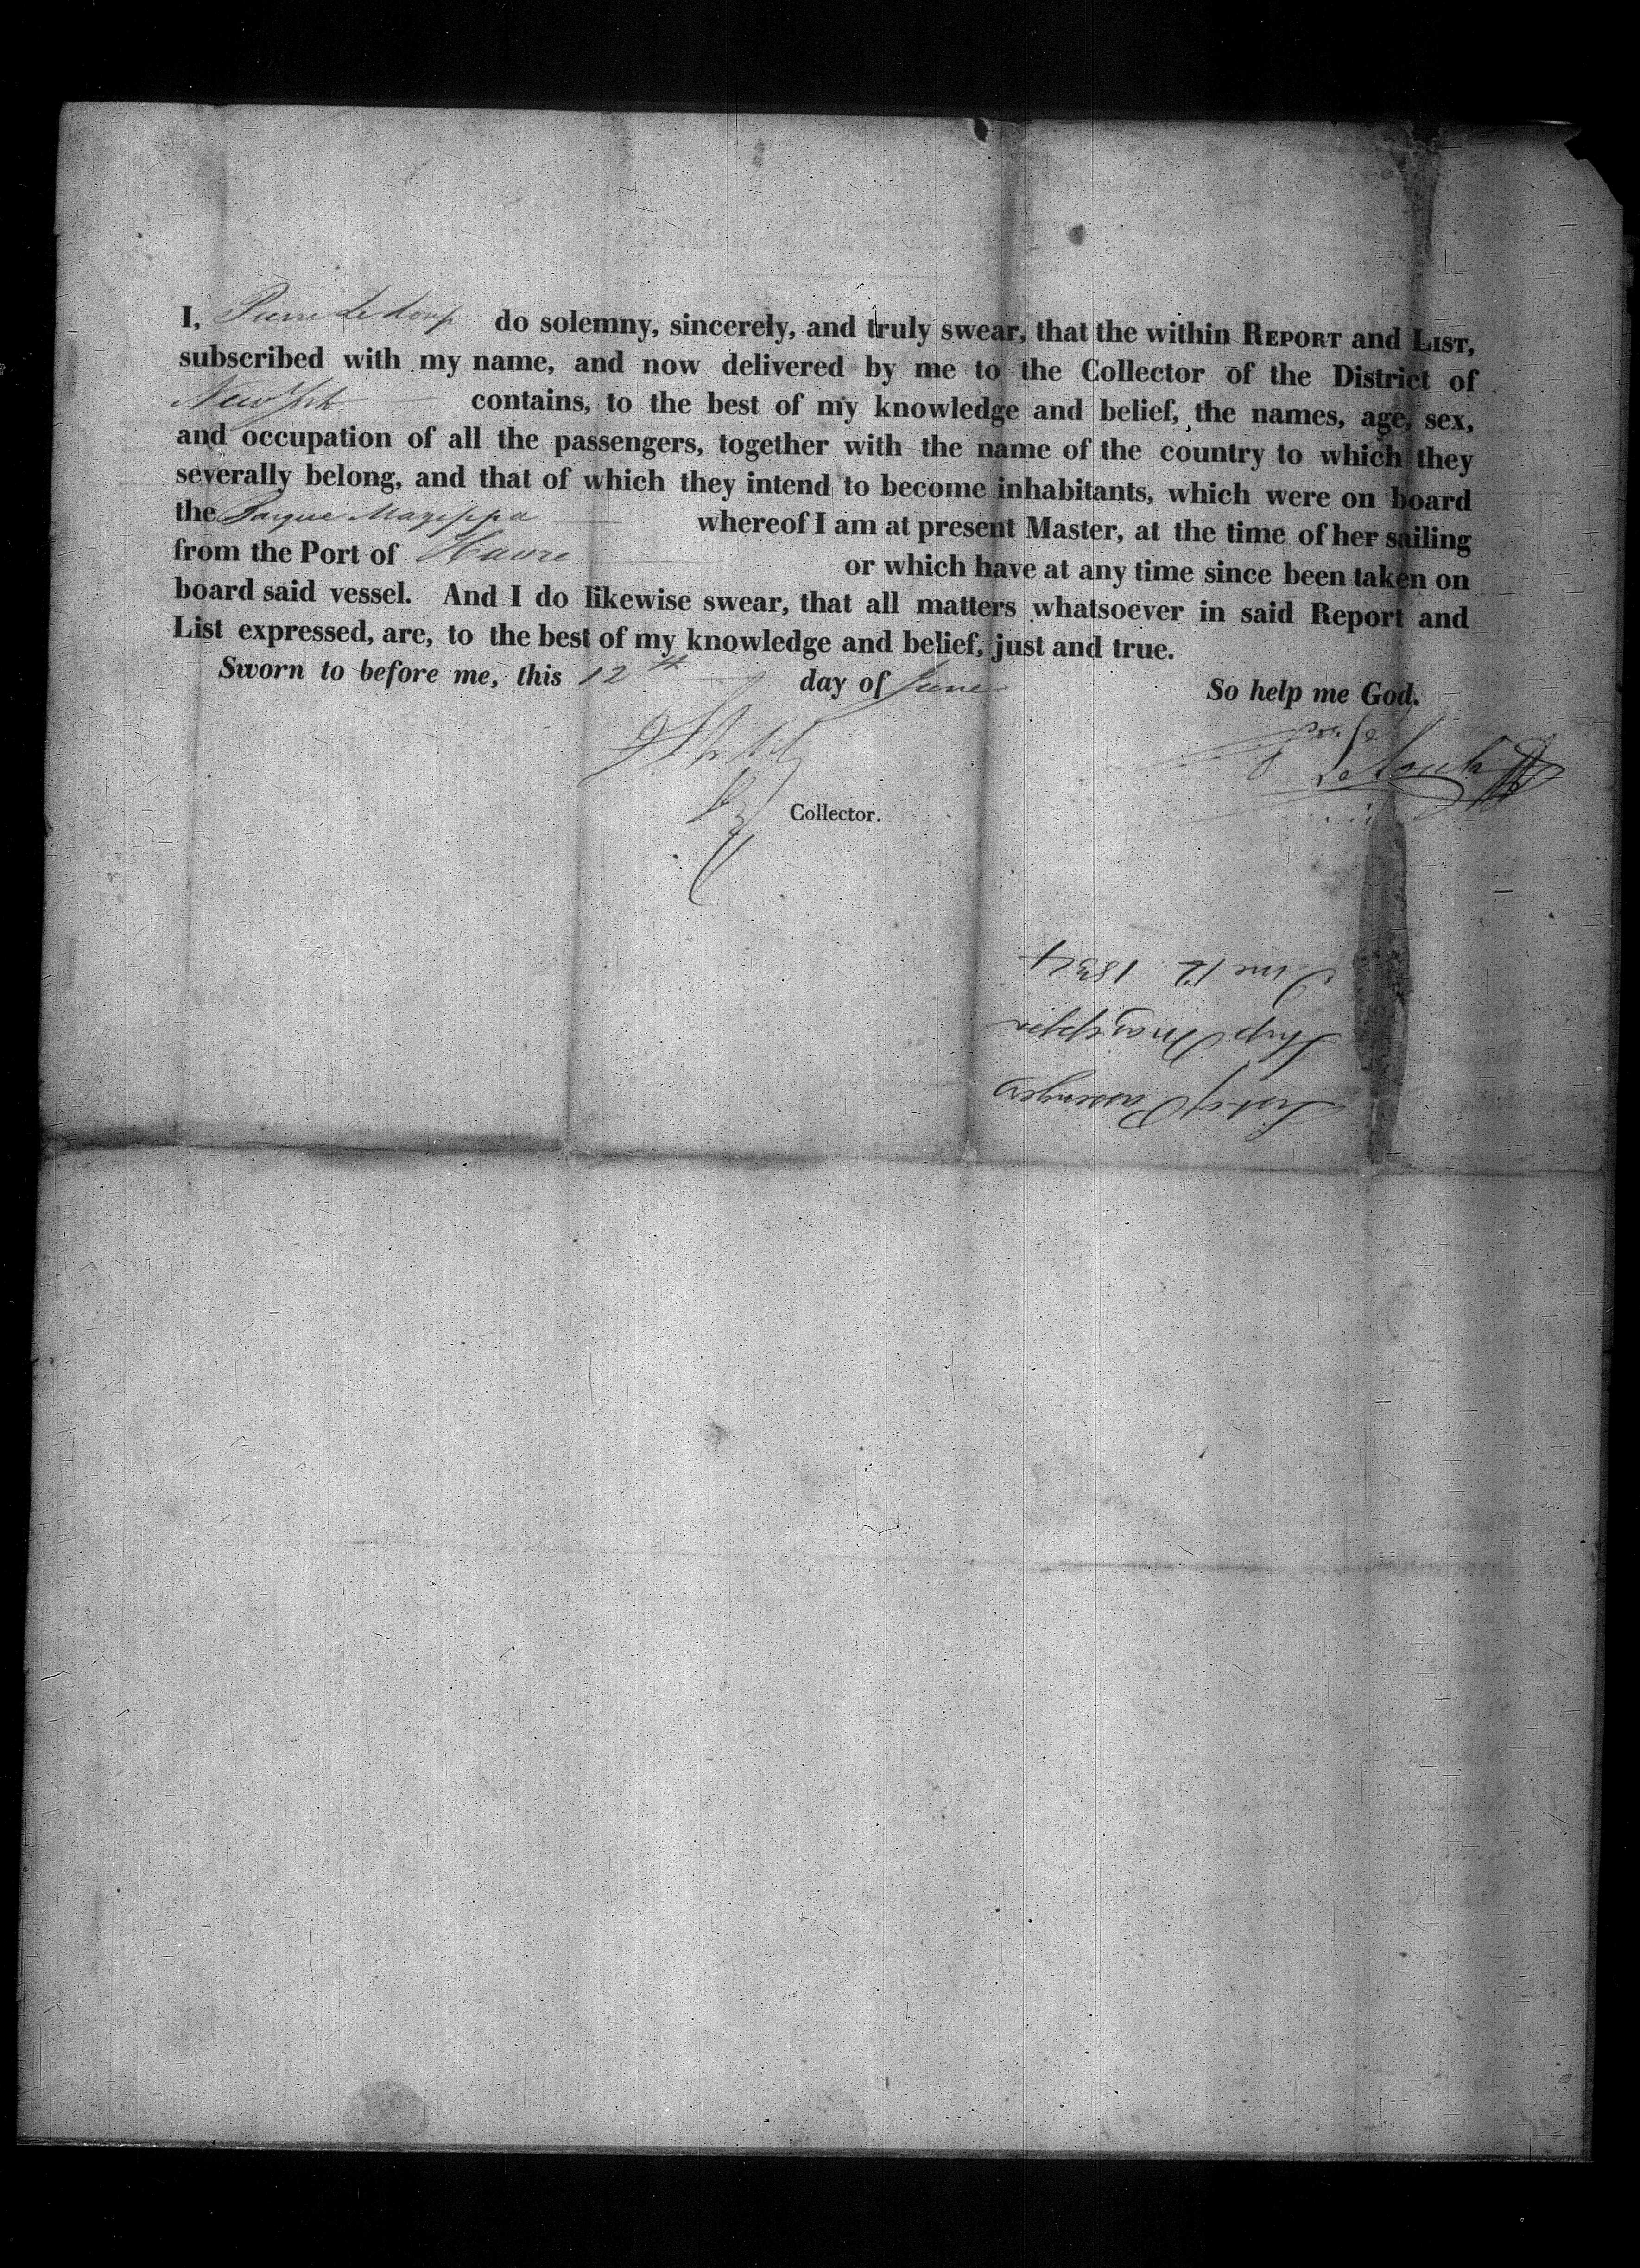 I, Pierre Le Loup do solemny, sincerely, and truly swear, that the within REPORT and LIST,
subscribed with my name, and now delivered by me to the Collector of the District of
New York contains, to the best of my knowledge and belief, the names, age, sex,
and occupation of all the passengers, together with the name of the country to which they
severally belong, and that of which they intend to become inhabitants, which were on board
the Barque Mazeppa whereof I am at present Master, at the time of her sailing
from the Port of Havre or which have at any time since been taken on
board said vessel. And I do likewise swear, that all matters whatsoever in said Report and
List expressed, are, to the best of my knowledge and belief, just and true.
Sworn to before me, this 12th day of June So help me God.
Collector.
List of Passengers
Ship Mazeppa
June 12 1834